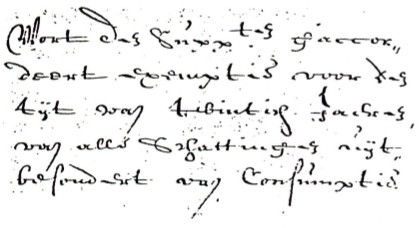 Wort des Supp.ten g'accor„
deert exemptie voor des
tijt van twintich Jaeren,
van alle Schattingen uijt„
besondert van Consumptie